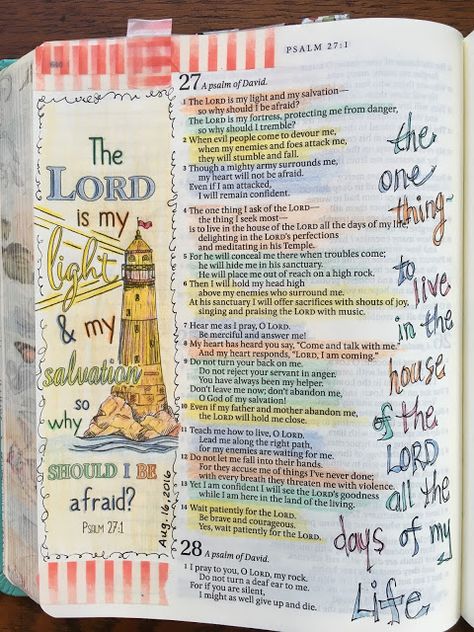 PSALM 27:1
The
LORD
is my
light
& my
salvation
so
why
SHOULD I BE
afraid?
PSALM 27:1
Aug. 16, 2016
27 A psalm of David.
1 The LORD is my light and my salvation—
so why should I be afraid?
The LORD is my fortress, protecting me from danger,
so why should I tremble?
2 When evil people come to devour me,
when my enemies and foes attack me,
they will stumble and fall.
3 Though a mighty army surrounds me,
my heart will not be afraid.
Even if I am attacked,
I will remain confident.
4 The one thing I ask of the LORD—
the thing I seek most—
is to live in the house of the LORD all the days of my life,
delighting in the LORD's perfections
and meditating in his Temple.
5 For he will conceal me there when troubles come;
he will hide me in his sanctuary.
He will place me out of reach on a high rock.
6 Then I will hold my head high
above my enemies who surround me.
At his sanctuary I will offer sacrifices with shouts of joy,
singing and praising the LORD with music.
7 Hear me as I pray, O LORD.
Be merciful and answer me!
8 My heart has heard you say, "Come and talk with me."
And my heart responds, "LORD, I am coming."
9 Do not turn your back on me.
Do not reject your servant in anger.
You have always been my helper.
Don't leave me now; don't abandon me,
O God of my salvation!
10 Even if my father and mother abandon me,
the LORD will hold me close.
11 Teach me how to live, O LORD.
Lead me along the right path,
for my enemies are waiting for me.
12 Do not let me fall into their hands.
For they accuse me of things I've never done;
with every breath they threaten me with violence.
13 Yet I am confident I will see the LORD's goodness
while I am here in the land of the living.
14 Wait patiently for the LORD.
Be brave and courageous.
Yes, wait patiently for the LORD.
28 A psalm of David.
1 I pray to you, O LORD, my rock.
Do not turn a deaf ear to me.
For if you are silent,
I might as well give up and die.
the
one
thing-
to
live
in the
house
of the
LORD
all the
days of my
Life